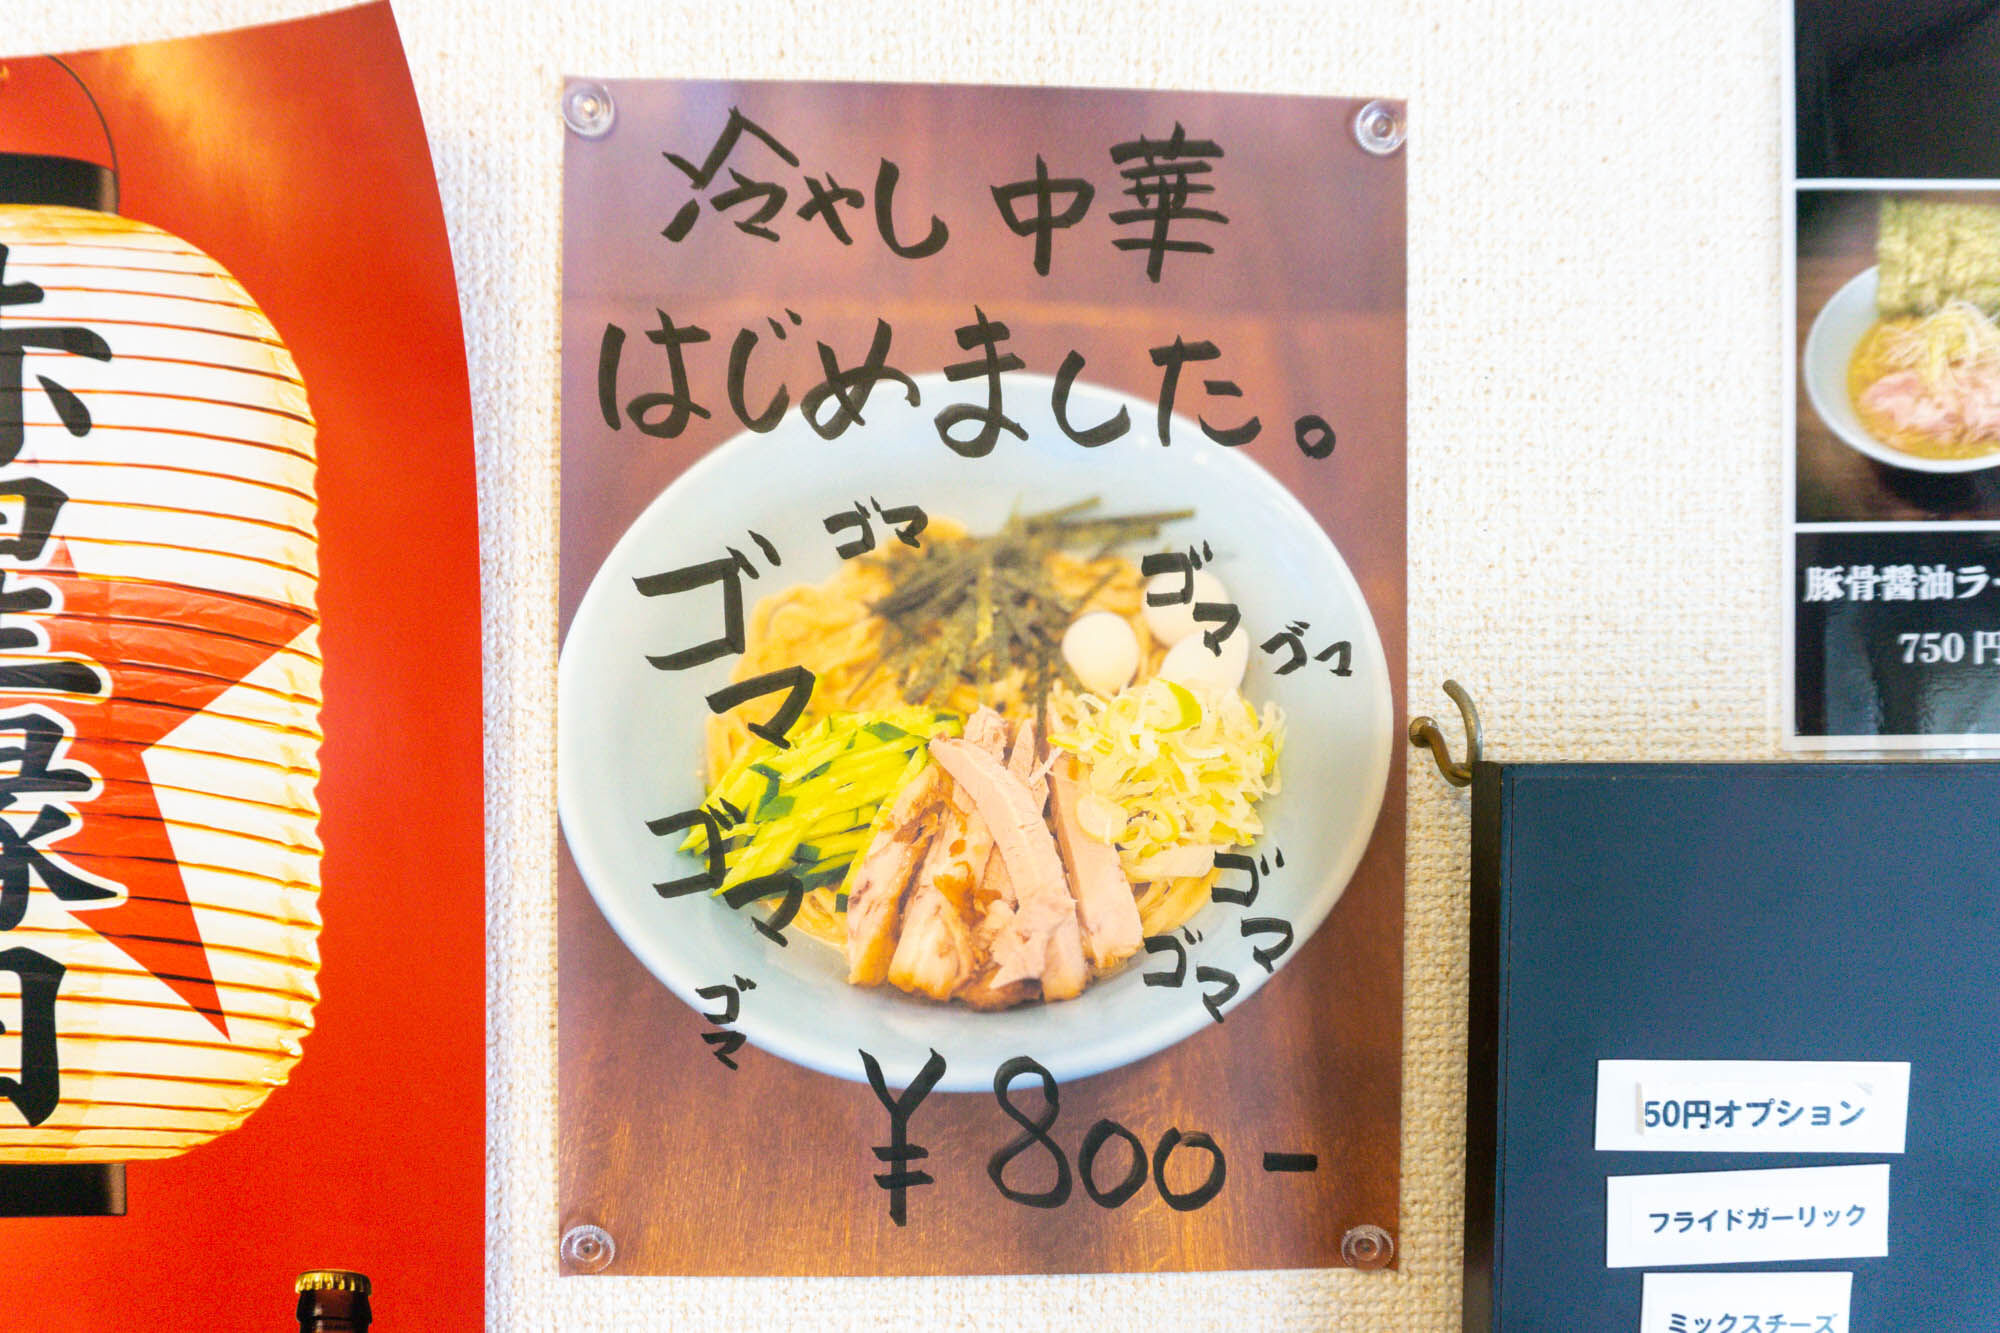 冷やし中華
はじめました。
ゴマ
ゴマ
ゴマ
ゴマ
ゴマ
ゴマ
ゴマ
ゴマ
¥800-
赤星
豚骨醤油ラー
750円
50円オプション
フライドガーリック
ミックスチーズ